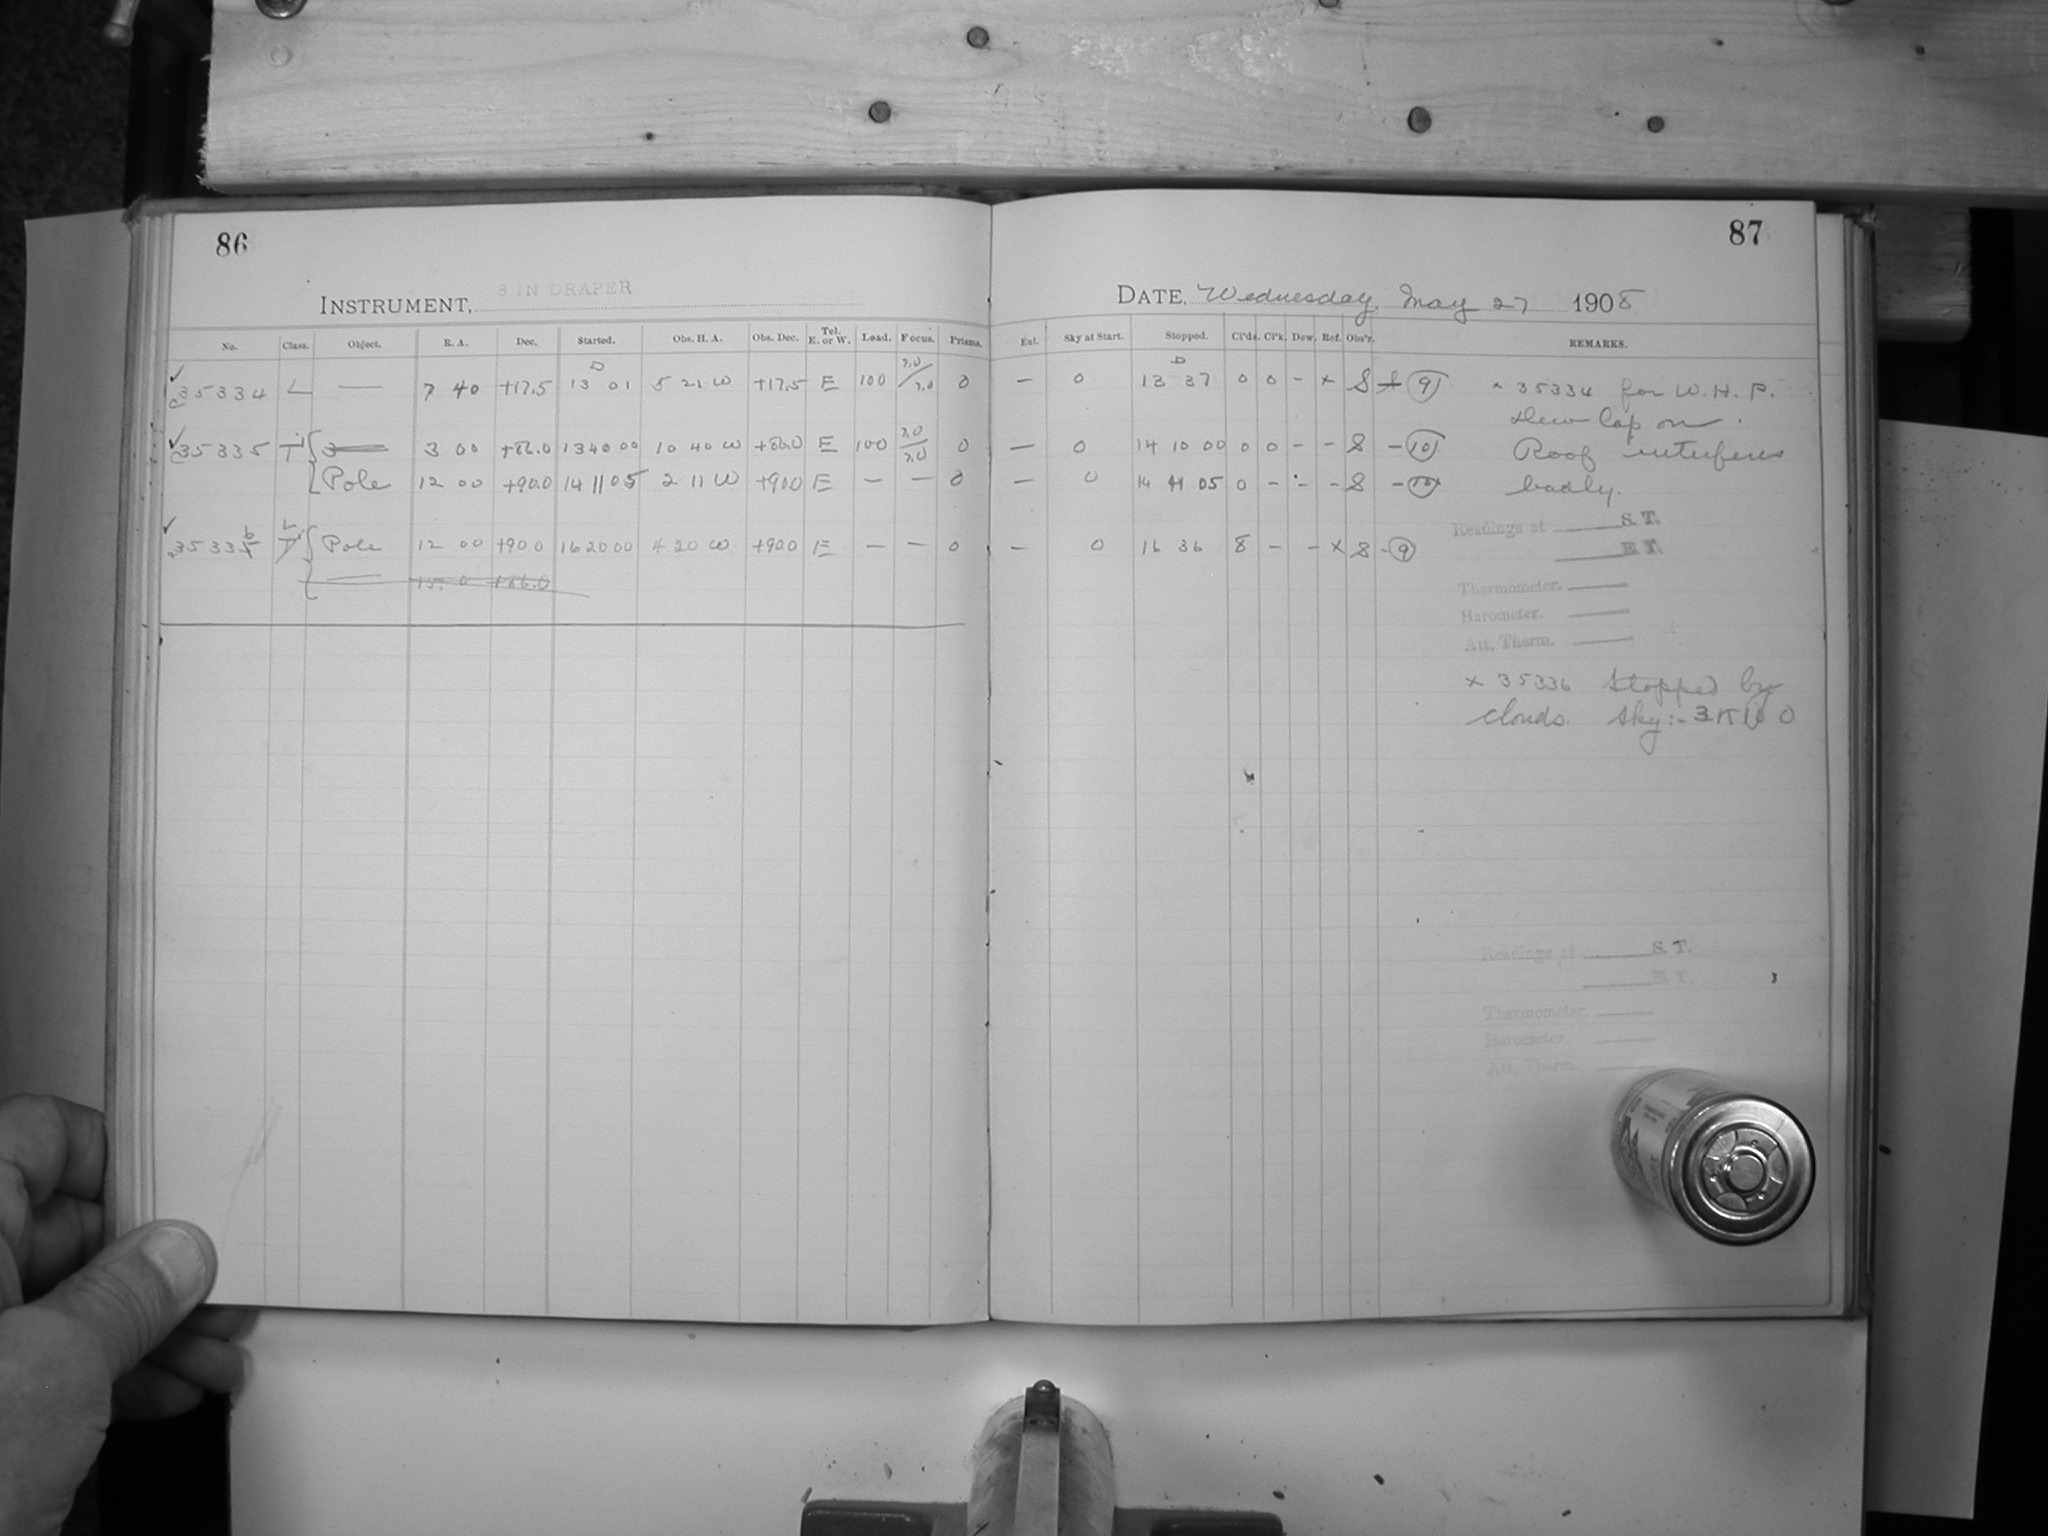 86
INSTRUMENT, 8 IN DRAPER
No. Class. Object. R. A. Dec. Started. Obs. H. A. Obs. Dec. Tel. E. or W. Load. Focus. Prisms.
35334 L — 7 40 +17.5 13 01 5 21 W +17.5 E 100 0
35335 3 00 +86.0 13 40 00 10 40 W +86.0 E 100 0
Pole 12 00 +90.0 14 11 05 2 11 W +90.0 E — — 0
Pole 12 00 +90.0 16 20 00 4 20 W +90.0 E — — 0
87
DATE, Wednesday, May 27 1908
Eul. Sky at Start. Stopped. Cl'ds. Cl'k. Dew. Ref. Obs'r. REMARKS.
— 0 13 37 0 0 - x S 9
— 0 14 10 00 0 0 - - S - 10
— 0 14 11 05 0 - - - S -
— 0 16 36 8 - - x S - 9
x 35334 for W. H. P.
dew cap on.
Roof interferes
badly.
Readings at S. T.
E. T.
Thermometer.
Barometer.
Att. Therm.
x 35336 stopped by
clouds. Sky:-
Readings at S. T.
E. T.
Thermometer.
Barometer.
Att. Therm.